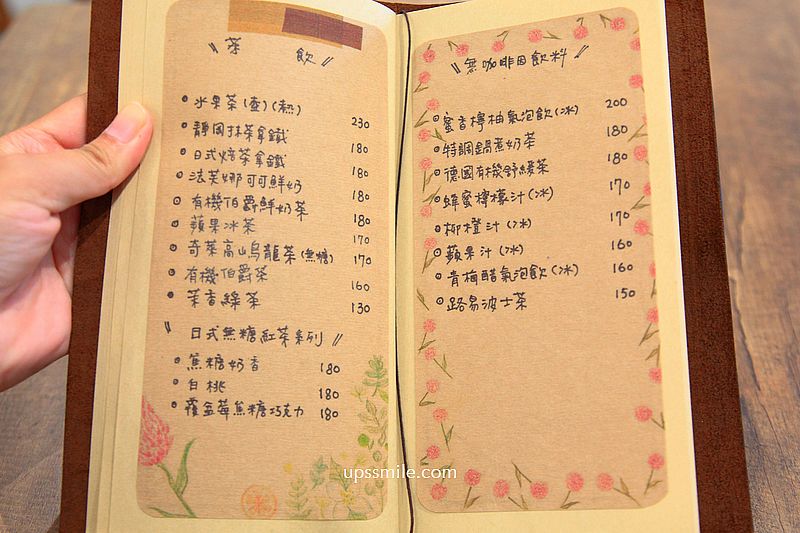 茶 飲
水果茶(壺)(熱) 230
靜岡抹茶拿鐵 180
日式焙茶拿鐵 180
法芙娜可可鮮奶 180
有機伯爵鮮奶茶 180
蘋果冰茶 170
奇萊高山烏龍茶(無糖) 170
有機伯爵茶 160
茉香綠茶 130
日式無糖紅茶系列
焦糖奶香 180
白桃 180
覆盆莓焦糖巧克力 180
無咖啡因飲料
蜜香檸柚氣泡飲(冰) 200
特調鍋煮奶茶 180
德國有機舒緩茶 180
蜂蜜檸檬汁(冰) 170
柳橙汁(冰) 170
蘋果汁(冰) 160
青梅醋氣泡飲(冰) 160
路易波士茶 150
upssmile.com